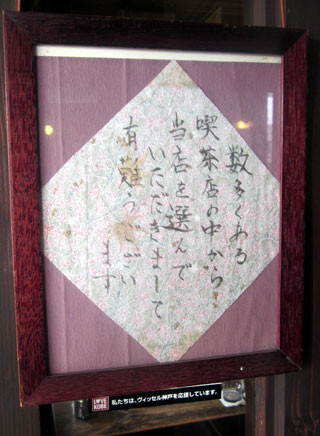 数多くある
喫茶店の中から
当店を選んで
いただきまして
有難うござい
ます
I LOVE KOBE
私たちは、ヴィッセル神戸を応援しています。